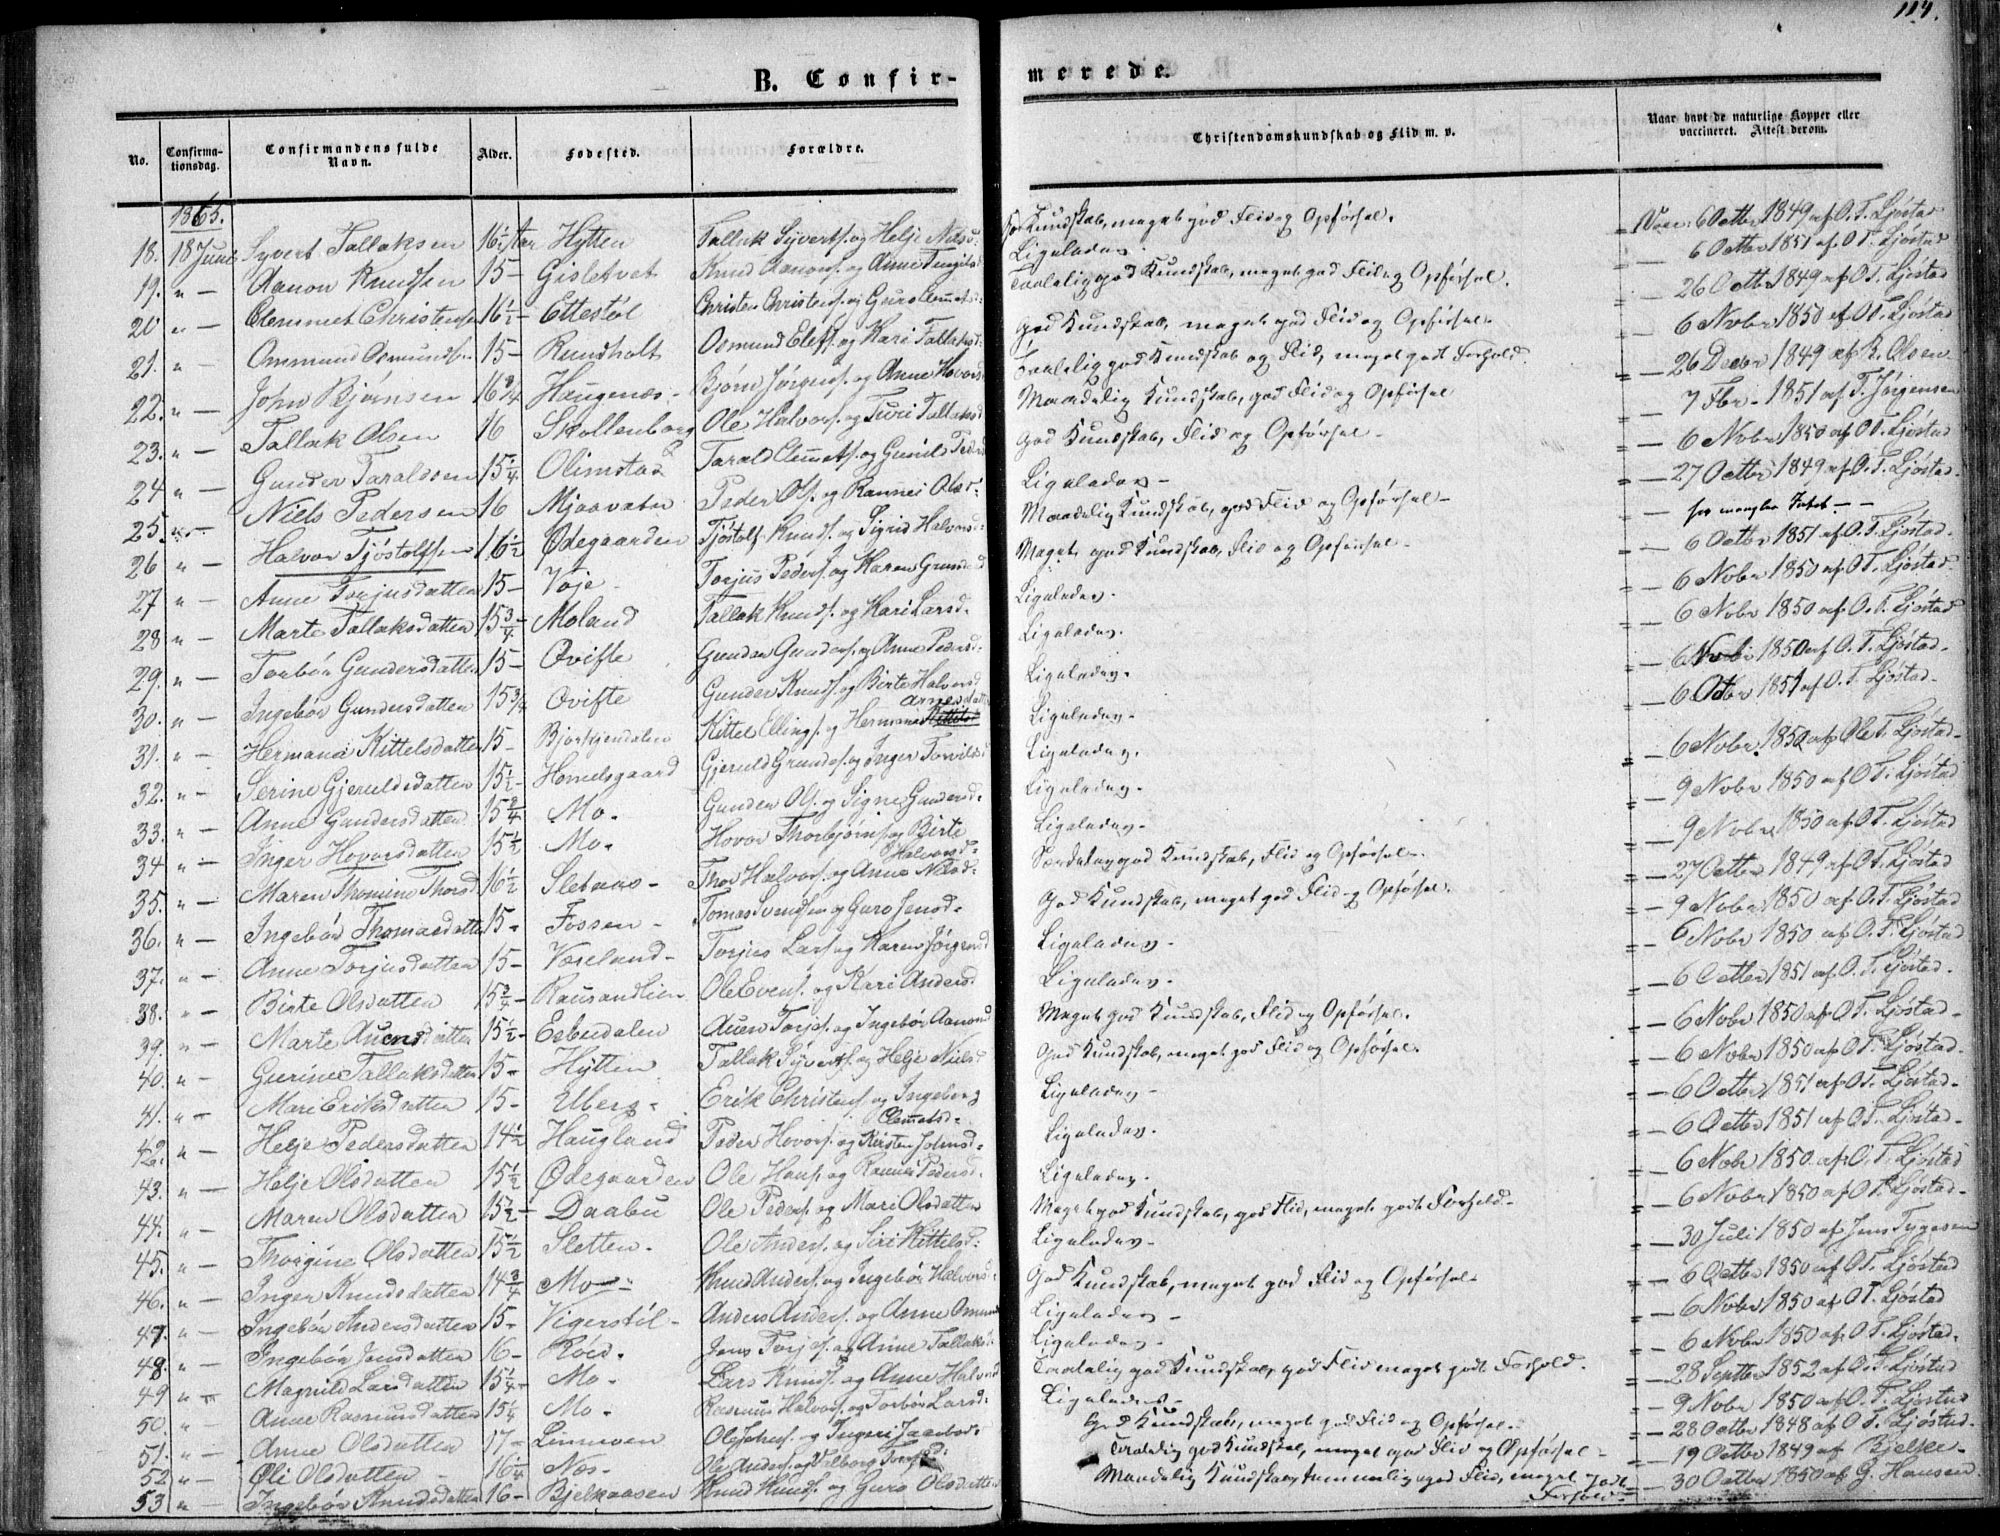 114.
B. Confir-
merede.
No. Confirma-tionsdag. Confirmandens fulde Navn. Alder. Fødested. Forældre. Christendomskundskab og Flid m. v. Naar havt de naturlige Kopper eller vaccineret. Attest derom.
1865.
18. 18 Juni Syvert Tallaksen 16½ Aar Hytten Tallak Syverts. og Helje Nilsd. Kundskab, meget god Flid og Opførsel. Vacc. 6 Octbr 1849 af O. T. Ljøstad
19. " — Aanon Knudsen 15 — Gisletvet Knud Aanons. og Anne Tengilsd. Ligeledes. — 6 Octbr 1851 af O. T. Ljøstad
20 " — Clemmet Christensen 16½ — Ettestøl Christen Christens. og Guro Clemetsd. Taalelig god Kundskab, meget god Flid og Opførsel. — 26 Octbr 1849 af O. T. Ljøstad
21. " — Ommund Osmundsen 15 — Rundholt Osmund Elefs. og Kari Tallaksd. God Kundskab, meget god Flid og Opførsel. — 6 Novbr 1850 af O. T. Ljøstad
22. " — John Bjørnsen 16¾ Haugenæs - Bjørn Jørgens. og Anne Hovorsd. Taalelig god Kundskab og Flid, meget godt Forhold. — 26 Decbr 1849 af R. Olsen
23. " — Tallak Olsen 16 Skollenborg Ole Halvors. og Turi Tallaksd. Maadelig Kundskab, god Flid og Opførsel — 7 Fbr. 1851 af T. Jørgensen
24 " — Gunder Taraldsen 15¼ Olimstad Tarald Clemets. og Gunild Pedersd. God Kundskab, Flid og Opførsel - — 6 Novbr 1850 af O. T. Ljøstad
25. " — Niels Pedersen 16 Mjaavatn Peder Ols. og Rannei Olsd. Ligeledes - — 27 Octbr 1849 af O. T. Ljøstad
26 " — Halvor Tjøstolfsen 16½ Ødegaarden Tjøstolf Knuds. og Sigrid Halvorsd. Maadelig Kundskab, god Flid og Opførsel - — her mangler Intet - -
27 " — Anne Torjusdatter 15 — Voje Torjus Peders. og Karen Gundersd. Meget god Kundskab, Flid og Opførsel - — 6 Octbr 1851 af O. T. Ljøstad
28 " — Marte Tallaksdatter 15¾ — Moland Tallak Knuds. og Kari Larsd. Ligeledes. — 6 Novbr 1850 af O. T. Ljøstad
29. " — Torbør Gundersdatter 15 — Ovifte Gunder Gunders. og Anne Pedersd. Ligeledes. — 6 Novbr 1850 af O. T. Ljøstad
30. " — Ingebør Gundersdatter 15¾ Ovifte Gunder Knuds. og Birte Halvorsd Ligeledes. — 6 Novbr 1850 af O. T. Ljøstad.
31. " — Hermana Kittelsdatter 15 - Bjorkjendalen Kittel Ellings. og Hermana Arnesdatter Ligeledes. — 6 Octbr 1851 af O. T. Ljøstad.
32. " — Serine Gjeruldsdatter 15½ - Homelsgaard Gjeruld Gunders. og Inger Torvildsd Ligeledes. — 6 Novbr 1850 af Ole T. Ljøstad
33. " — Anne Gundersdatter 15¾ Mo - Gunder Ols. og Signe Gundersd. Ligeledes. — 9 Novbr 1850 af O. T. Ljøstad
34 " — Inger Hovorsdatter 15½ Mo - Hovor Thorbjørns. og Birte Halvorsd. Ligeledes. — 9 Novbr 1850 af O. T. Ljøstad
35. " — Maren Thomine Thorsd 16½ Sletnæs - Thor Halvors. og Anne Nilsd. Særdeles god Kundskab, Flid og Opførsel. — 27 Octbr 1849 af O. T. Ljøstad
36. " — Ingebør Thomasdatter 15 - Fossen - Tomas Svendsen og Guro Jensd. God Kundskab, meget god Flid og Opførsel. — 9 Novbr 1850 af O. T. Ljøstad
37. " — Anne Torjusdatter 15 — Væreland - Torjus Lars. og Karen Jørgensd Ligeledes - — 6 Novbr 1850 af O. T. Ljøstad
38. " — Birte Olsdatter 15¾ — Rausandlien Ole Evens. og Kari Andersd. Ligeledes. — 6 Octbr 1851 af O. T. Ljøstad.
39. " — Marte Auensdatter 15½ — Esbudalen Auen Torjs. og Ingebør Aanond Meget god Kundskab, Flid og Opførsel. — 6 Novbr 1850 af O. T. Ljøstad.
40. " — Gurine Tallaksdatter 15 - Hytten Tallak Syverts. og Helje Nielsd God Kundskab, meget god Flid og Opførsel. — 6 Novbr 1850 af O. T. Ljøstad
41. " — Mari Eriksdatter 15 - Elberg - Erik Christens. og Ingeborg Clemetsd. Ligeledes - — 6 Octbr 1851 af O. T. Ljøstad
42. " — Helje Pedersdatter 14½ Haugland Peder Hovors. og Kirsten Johnsd. Ligeledes. — 6 Octbr 1851 af O. T. Ljøstad
43. " — Helje Olsdatter 15½ Ødegaarden Ole Hans. og Rannei Pedersd. Ligeledes. — 6 Novbr 1850 af O. T. Ljøstad
44. " — Maren Olsdatter 15½ — Daabu Ole Peders. og Mari Olsdatter Meget god Kundskab, god Flid, meget godt Forhold - — 6 Novbr 1850 af O. T. Ljøstad.
45. " — Thorgine Olsdatter 15½ Sletten - Ole Anders. og Siri Kittelsd. Ligeledes - — 30 Juli 1850 af Jens Tygesen
46. " — Inger Knudsdatter 14¾ Mo - Knud Anders. og Ingebør Halvorsd God Kundskab, meget god Flid og Opførsel. — 6 Octbr 1850 af O. T. Ljøstad
47 " — Ingebør Andersdatter 15 - Vigerstøl - Anders Anders. og Anne Omund Ligeledes - — 6 Novbr 1850 af O. T. Ljøstad
48. " — Ingebør Jensdatter 16 - Røed - Jens Torjs. og Anne Tallaksd. Ligeledes - — 6 Novbr 1850 af O. T. Ljøstad.
49 " — Magnild Larsdatter 15¼ - Mo - Lars Knuds. og Anne Halvorsd Taalelig god Kundskab, god Flid meget godt Forhold. — 28 Septbr 1852 af O. T. Ljøstad
50. " — Anne Rasmusdatter 15¼ Mo - Rasmus Halvors. og Torbør Larsd. Ligeledes - — 9 Novbr 1850 af O. T. Ljøstad
51. " — Anne Olsdatter 17 - Linneven Ole Johns. og Ingeri Jacobsd. God Kundskab, meget god Flid og Opførsel - — 28 Octbr 1848 af O. T. Ljøstad.
52 " — Oli Olsdatter 16¼ Næs - Ole Anders. og Vilborg Torjs. Taalelig god Kundskab, meget god Flid og Opførsel - — 19 Octbr 1849 af Bjelke -
53 " — Ingebør Knudsdatter 16 - Bjelkaasen Knud Knuds. og Guro Olsdatter Maadelig Kundskab, temmelig god Flid, meget godt Forhold - — 30 Octbr 1850 af G. Hansen.